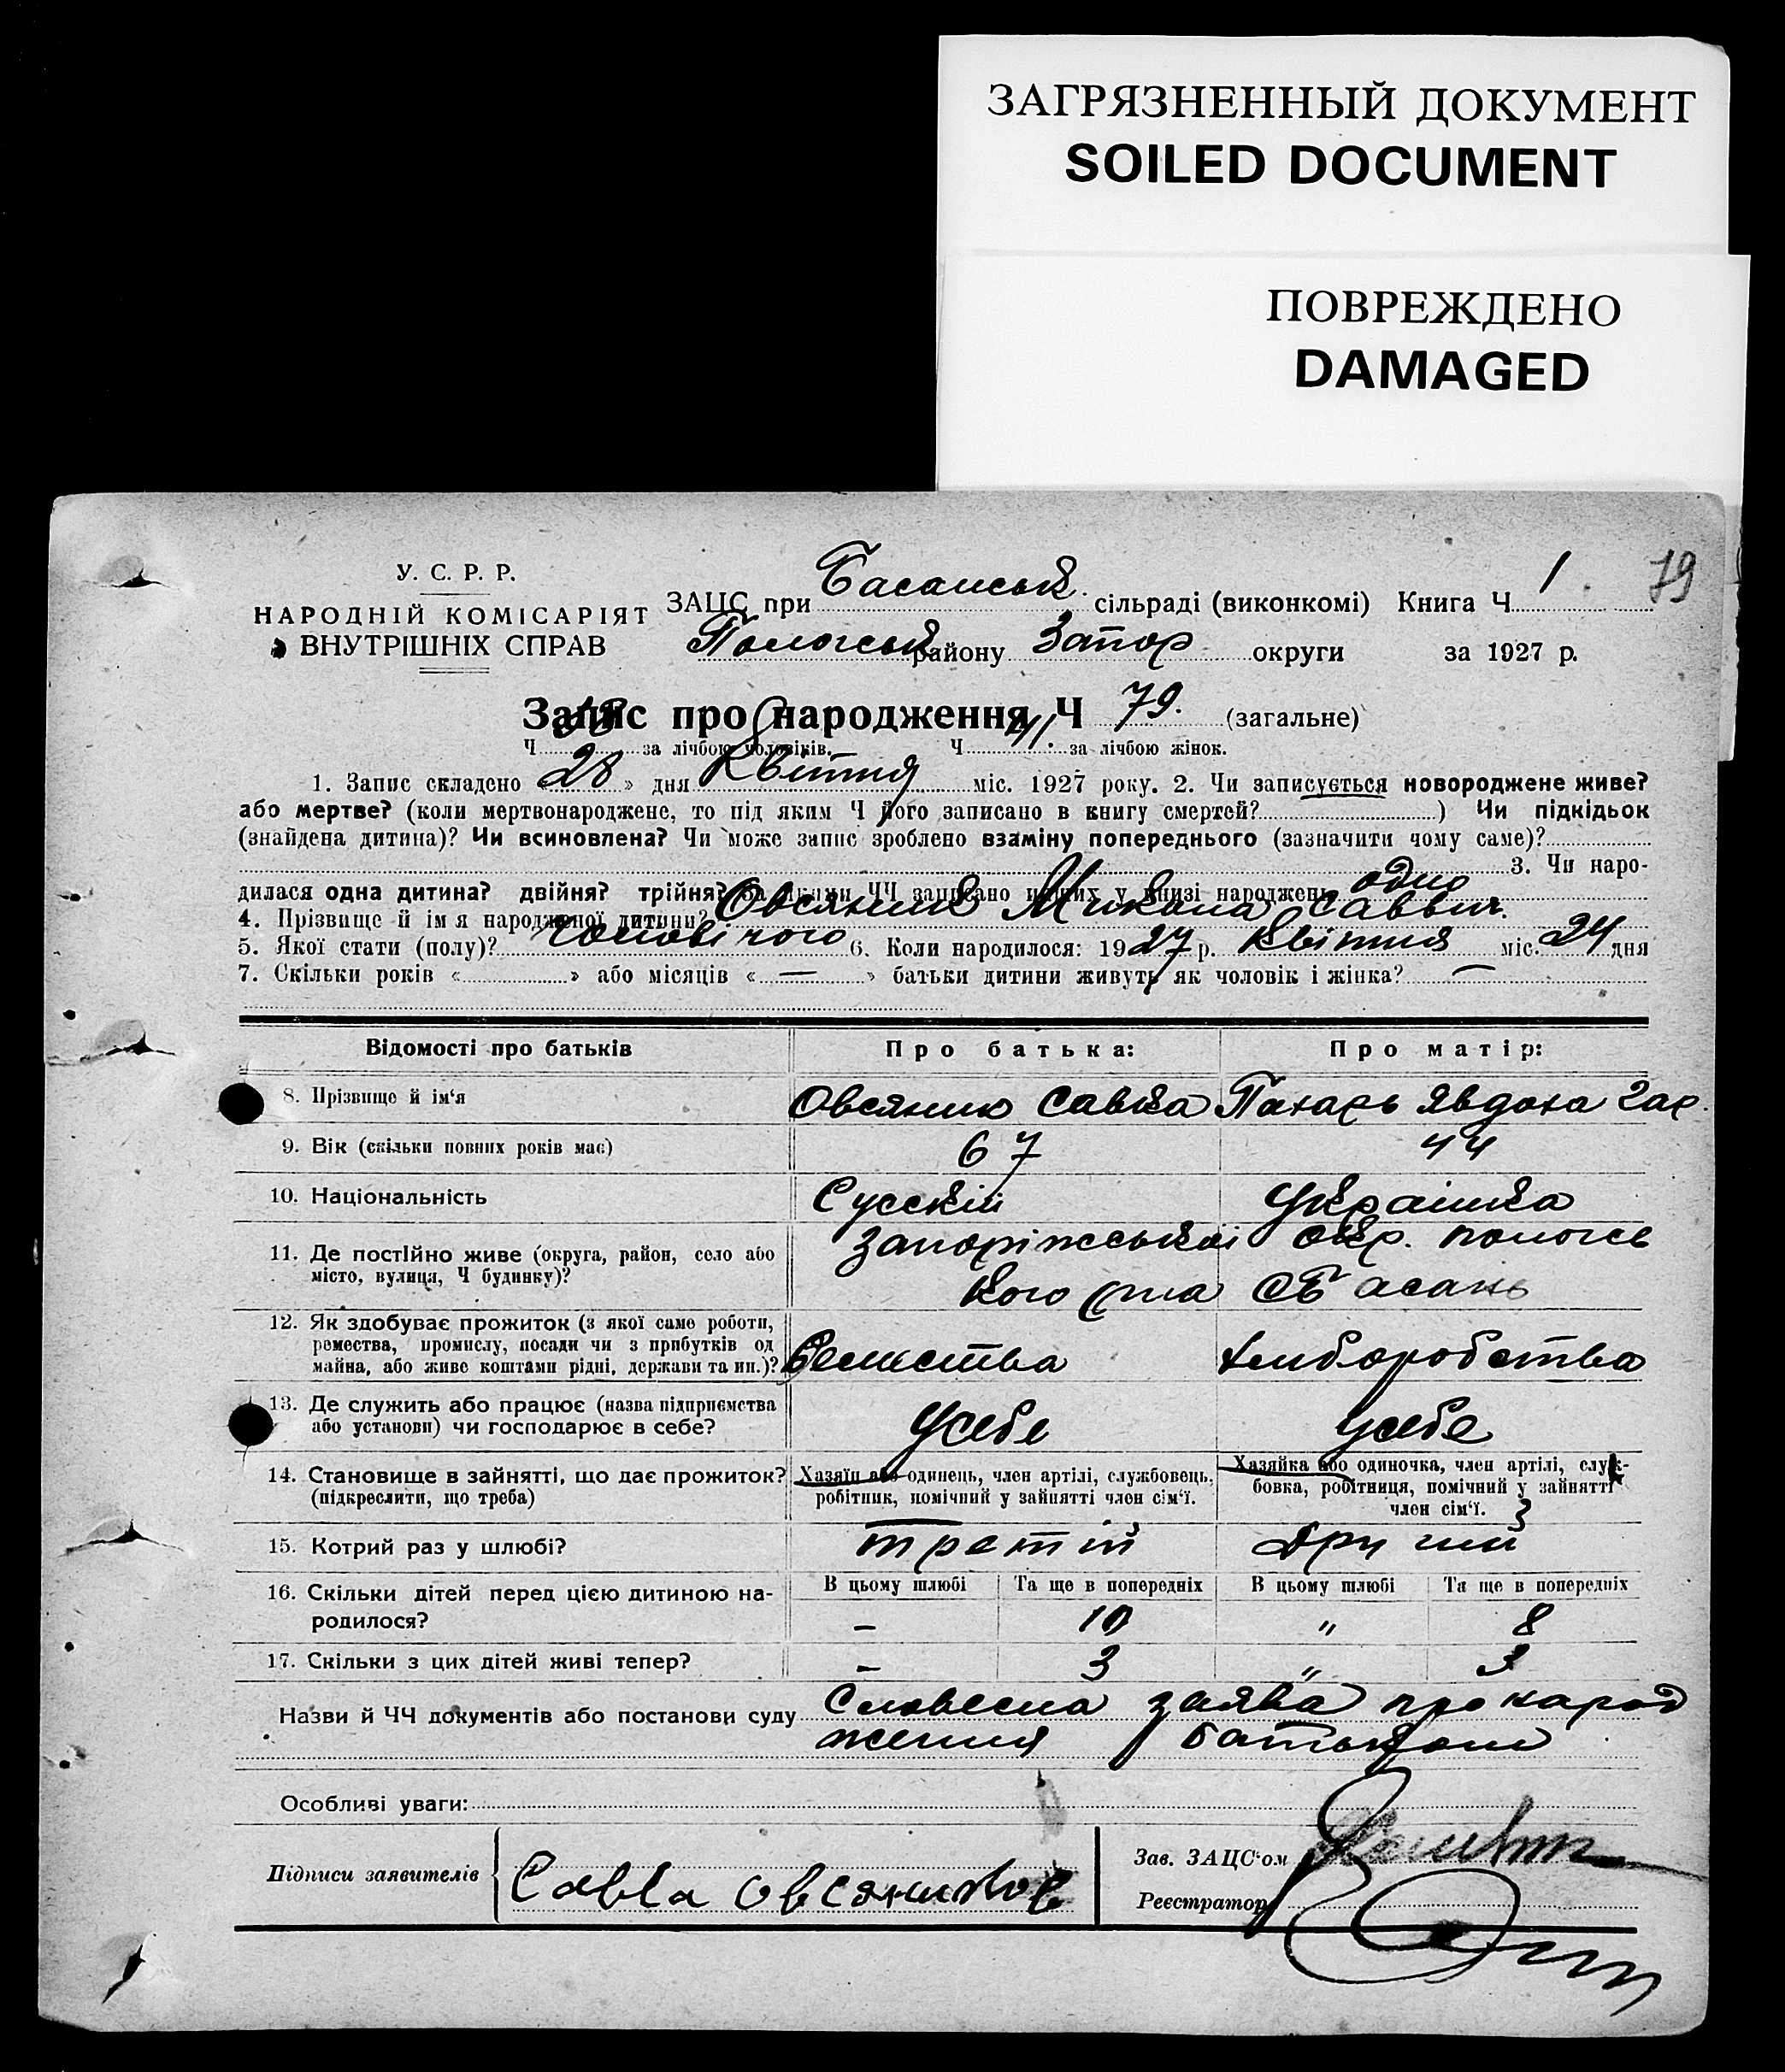 ЗАГРЯЗНЕННЫЙ ДОКУМЕНТ
SOILED DOCUMENT
ПОВРЕЖДЕНО
DAMAGED
79
У. С. Р. Р.
НАРОДНІЙ КОМІСАРІЯТ
ВНУТРІШНІХ СПРАВ
ЗАЦС при Басанськ. сільраді (виконкомі) Книга Ч 1
Пологськ району Запор округи за 1927 р.
Запис про народження Ч 79. (загальне)
Ч 38 за лічбою чоловіків. Ч 41. за лічбою жінок.
1. Запис складено « 28 » дня Квітня міс. 1927 року. 2. Чи записується новороджене живе?
або мертве? (коли мертвонароджене, то під яким Ч його записано в книгу смертей? ) Чи підкідьок
(знайдена дитина)? Чи всиновлена? Чи може запис зроблено взаміну попереднього (зазначити чому саме)?
3. Чи наро-
дилася одна дитина? двійня? трійня? За якими ЧЧ записано инших у книзі народжень одно
4. Прізвище й ім я народженої дитини? Овсяник Микола Саввич.
5. Якої стати (полу)? Чоловічого 6. Коли народилося: 1927 р. Квітня міс. 24 дня
7. Скільки років « » або місяців « — » батьки дитини живуть як чоловік і жінка? —
Відомості про батьків Про батька: Про матір:
8. Прізвище й ім‘я Овсяник Савка Пахарь Явдоха Гар.
9. Вік (скільки повних років має) 67 44
10. Національність Русскій Українка
11. Де постійно живе (округа, район, село або Запоріжської окр. пологсь
місто, вулиця, Ч будинку)? кого р-на с Басань
12. Як здобуває прожиток (з якої саме роботи,
ремества, промислу, посади чи з прибутків од
майна, або живе коштами рідні, держави та ин.)?Ремества хліборобства
13. Де служить або працює (назва підприємства
або установи) чи господарює в себе? Усебе Усебе
14. Становище в зайнятті, що дає прожиток?
(підкреслити, що треба)
Хазяїн або одинець, член артілі, службовець,
робітник, помічний у зайнятті член сім‘ї.
Хазяйка або одиночка, член артілі, служ-
бовка, робітниця, помічний у зайнятті
член сім‘ї.
15. Котрий раз у шлюбі? третій Другий
16. Скільки дітей перед цією дитиною на-
родилося?
В цьому шлюбі Та ще в попередніх В цьому шлюбі Та ще в попередніх
— 10 " 8
17. Скільки з цих дітей живі тепер? — 3 " 3
Назви й ЧЧ документів або постанови суду Словесна заява про народ
ження батьком
Особливі уваги:
Підписи заявителів Савва Овсяников
Зав. ЗАЦС‘ом
Реєстратор